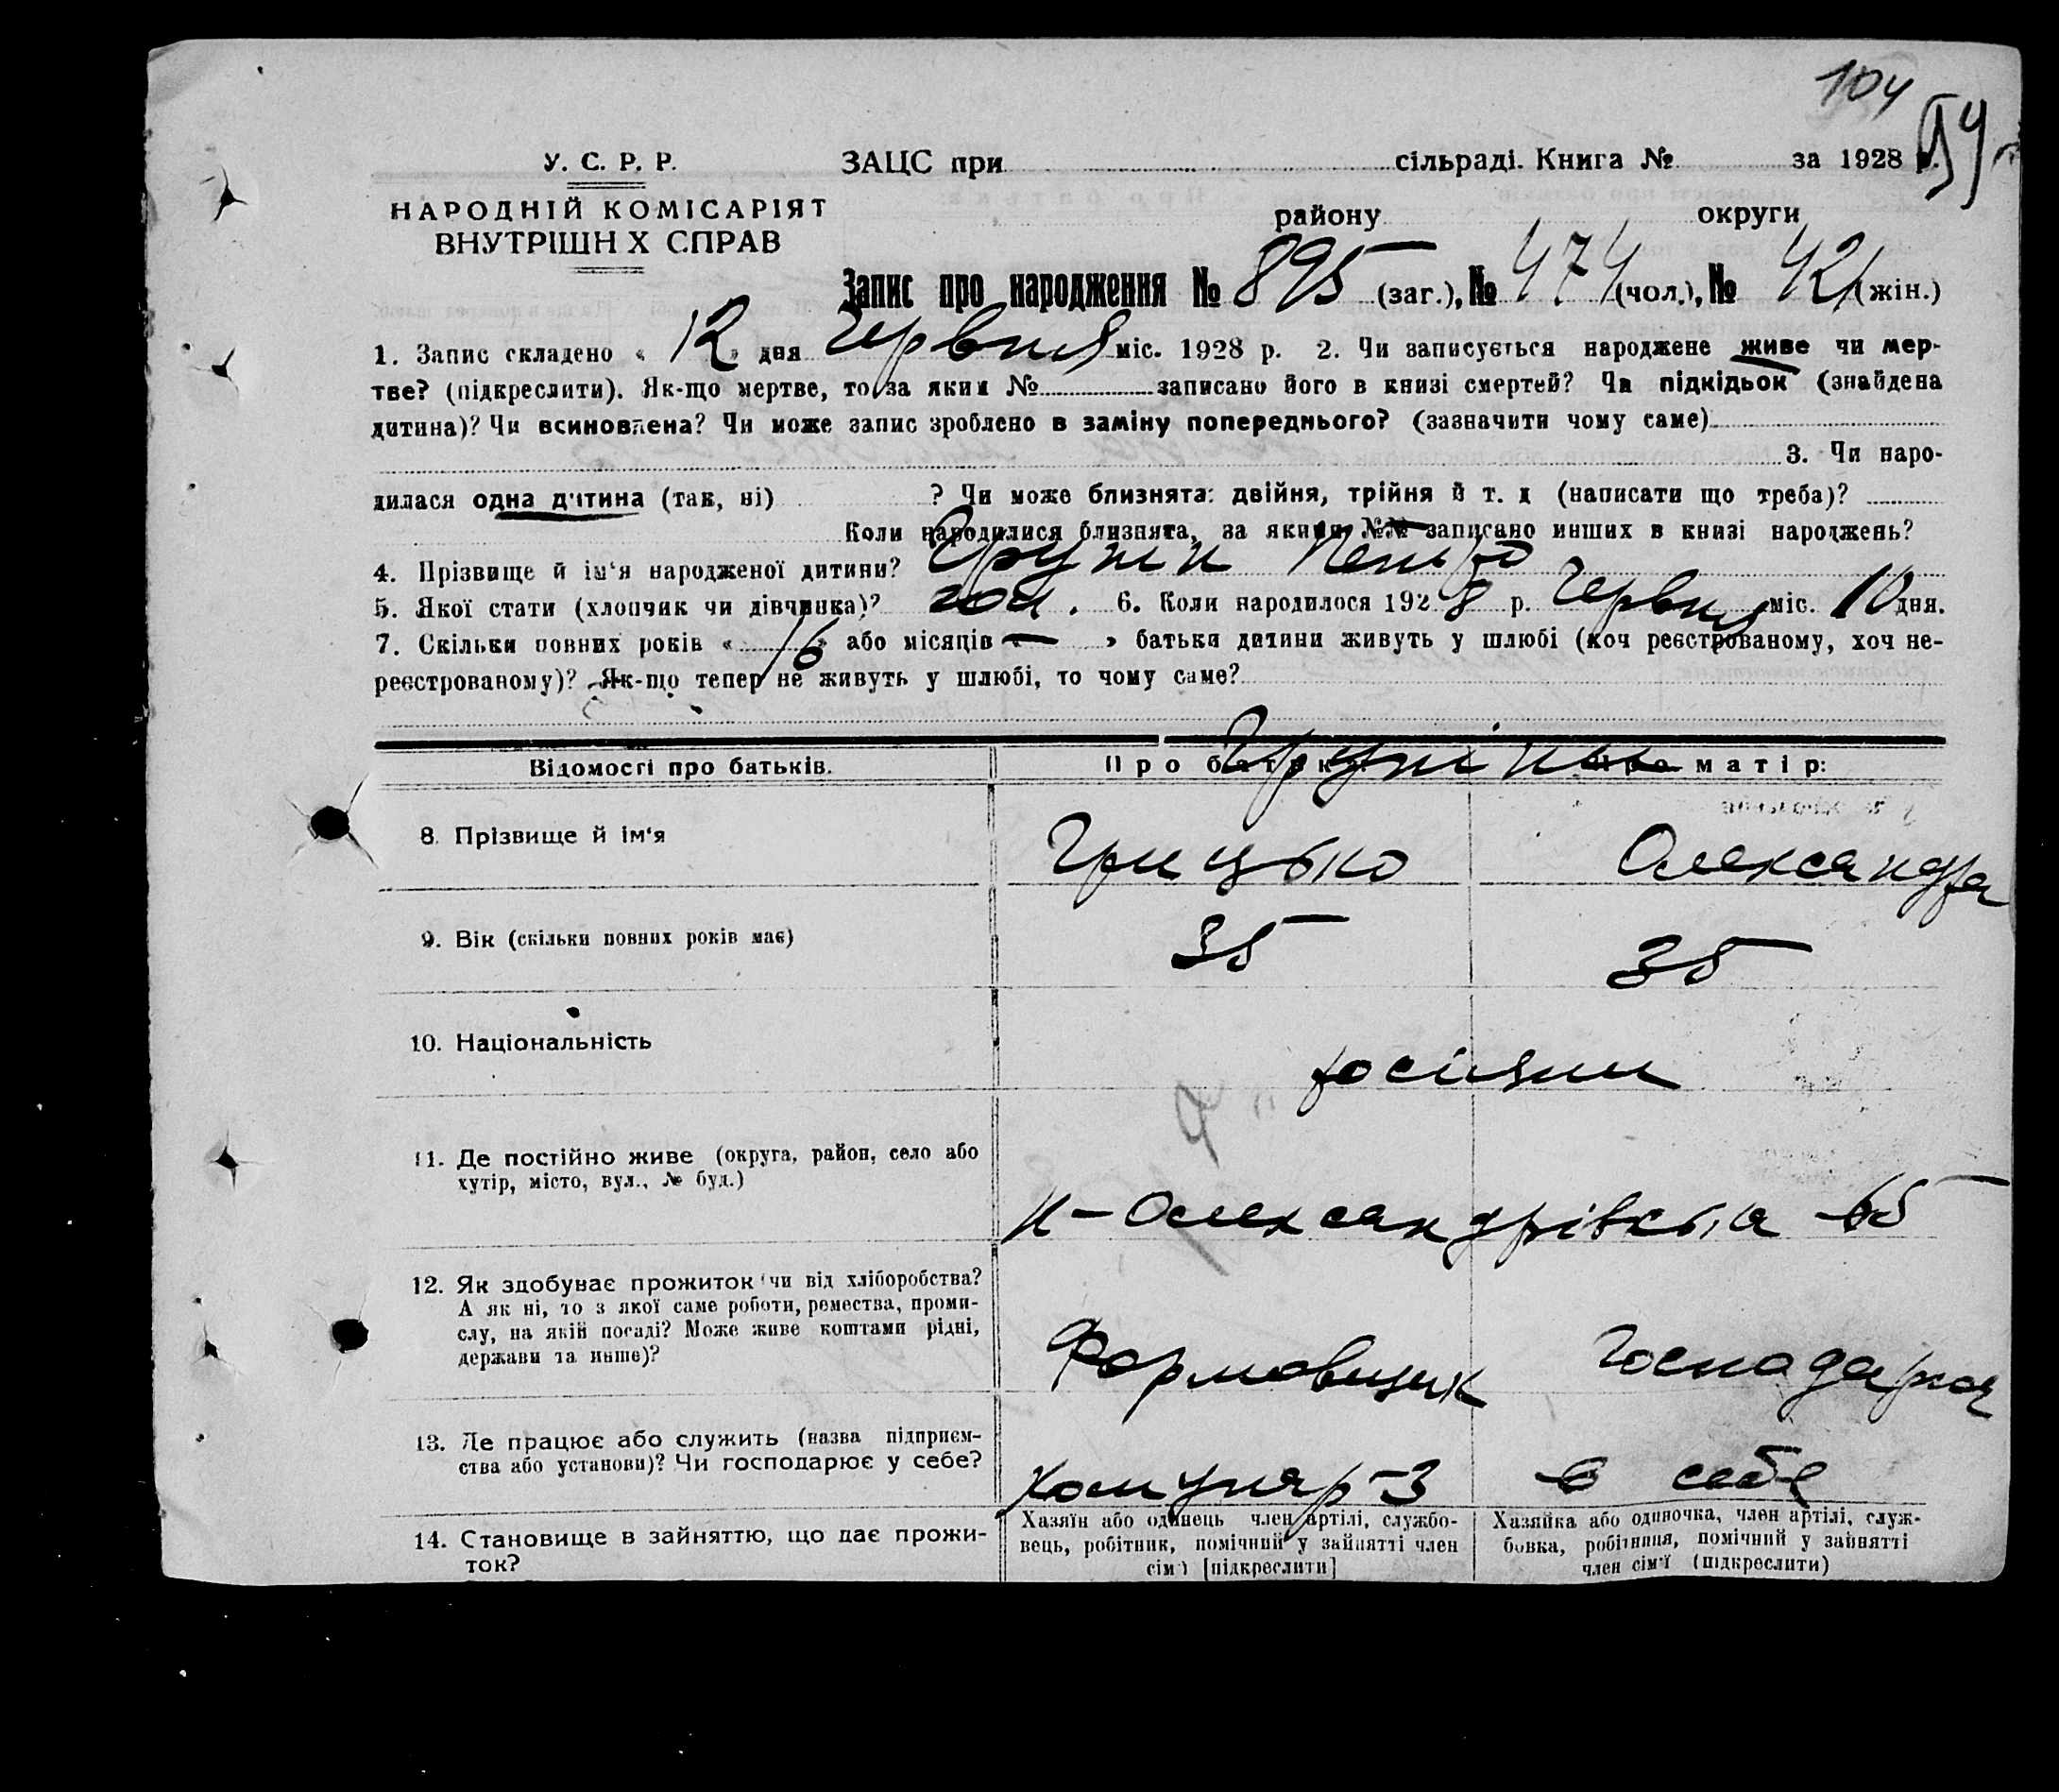 104
У. С. Р. Р. ЗАЦС при сільраді. Книга № за 1928 р.
НАРОДНІЙ КОМІСАРІЯТ району округи
ВНУТРІШН Х СПРАВ
Запис про народження № 895 (заг.), № 474 (чол.), № 421 (жін.)
1. Запис складено « 12 » дня Червня міс. 1928 р. 2. Чи записується народжене живе чи мер-
тве? (підкреслити). Як-що мертве, то за яким № записано його в книзі смертей? Чи підкідьок (знайдена
дитина)? Чи всиновлена? Чи може запис зроблено в заміну попереднього? (зазначити чому саме)
3. Чи наро-
дилася одна дитина (так, ні) ? Чи може близнята: двійня, трійня й т. д (написати що треба)?
Коли народилися близнята, за якими №№ записано инших в книзі народжень?
4. Прізвище й ім‘я народженої дитини?
5. Якої стати (хлопчик чи дівчинка)? чол. 6. Коли народилося 1928 р. Червня міс. 10 дня.
7. Скільки повних років « 16 » або місяців « — » батьки дитини живуть у шлюбі (хоч реєстрованому, хоч не-
реєстрованому)? Як-що тепер не живуть у шлюбі, то чому саме?
Відомості про батьків. Про батька: Про матір:
8. Прізвище й ім‘я Грицько Олександра
9. Вік (скільки повних років має) 35 35
10. Національність росіяни
11. Де постійно живе (округа, район, село або
хутір, місто, вул., № буд.)
Н-Олександрівська 65
12. Як здобуває прожиток (чи від хліборобства?
А як ні, то з якої саме роботи, ремества, проми-
слу, на якій посаді? Може живе коштами рідні,
держави та инше)?
Формовщик Господарка
13. Де працює або служить (назва підприєм-
ства або установи)? Чи господарює у себе?
Комунар-3 в себе
14. Становище в зайняттю, що дає прожи-
ток?
Хазяїн або одинець член артілі, службо-
вець, робітник, помічний у зайнятті член
сім'ї [підкреслити]
Хазяйка або одиночка, член артілі, служ-
бовка, робітниця, помічний у зайнятті
член сім'ї (підкреслити)